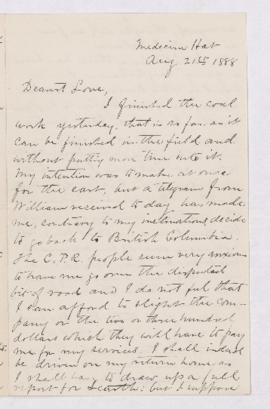 Medicine Hat
Aug 21st 1888
Dearest Love,
I finished the coal
work yesterday, that is so far as it
can be finished in the field and
without putting more time into it.
My intention was to make at once
for the east, but a telegram from
William received to day has made
me, contrary to my inclinations decide
to go back to British Columbia.
The C.P.R. people seem very anxious
to have me go over the disputed
bit of road and I do not feel that
I can afford to slight the Com-
pany or the two or three hundred
dollars which they will have to pay
me for my services. I shall indeed
be driven on my return home as
I shall have to draw up a full
report for but I suppose